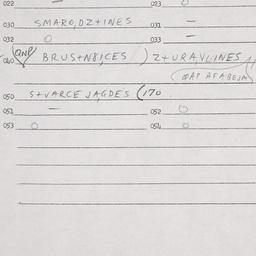 022 — 023 0
030 SMARO,DZ+INES 031 —
032 0 033 —
040 (QNP) BRUS+N8ICES ) Z+URAVLINES
AFABEJA
050 S+VARCE JAGDES (170
051 — 052 0
053 0 054 0